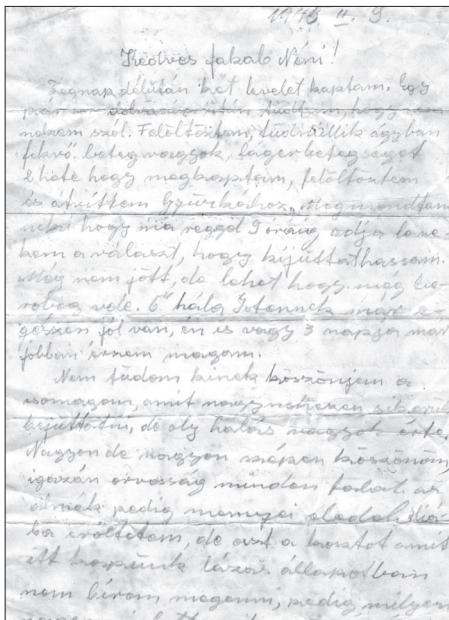 1945 II. 3.
Kedves Jakabb Néni!
Tegnap délután két levelet kaptam. Egy
pár sor elolvasása után tudtam, hogy nem
nekem szól. Felöltöztem, tudniillik ágyban
fekvő beteg vagyok, lágerbetegséget
2 hete hogy megkaptam, felöltöztem
és átvittem Gyurkához. Megmondtam
neki hogy ma reggel 9 óráig adja
a választ, hogy kijuttathassam.
Még nem jött, de lehet hogy még
vele. Ő hála Istennek már e-
gészen jól van, én is vagy 3 napja már
jobban érzem magam.
Nem tudom kinek köszönjem a
csomagom, amit nagynehezen sikerült
bejuttatni, de oly hálás vagyok érte.
Nagyon de nagyon szépen köszönöm,
igazán orvosság minden falat, az
pedig mennyei eledel.
erőltetem, de azt a kosztot amit
itt kapunk lázas állapotban
nem bírom megenni, pedig milyen